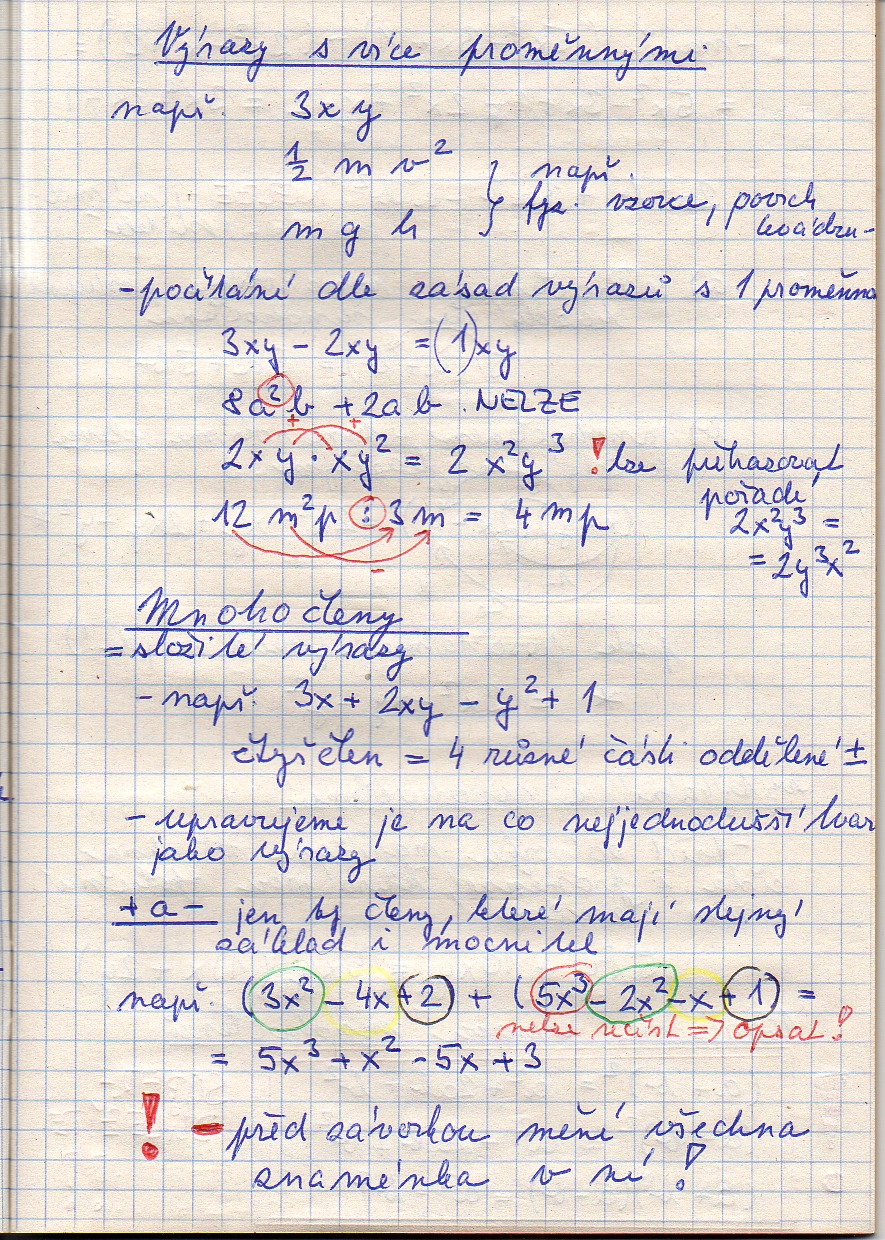 Výrazy s více proměnnými
např. 3xy
½ m v²
m g h
} např. fyz. vzorce, povrch kvádru
- počítání dle zásad výrazů s 1 proměnnou
3xy - 2xy = (1)xy
8a²b + 2ab. NELZE
+ +
2xy · xy² = 2x²y³ ! lze přhazovat
pořadí
12 m²p : 3m = 4mp 2x²y³ =
= 2y³x²
-
Mnohočleny
= složité výrazy
- např. 3x + 2xy - y² + 1
čtyřčlen = 4 různé části oddělené ±
- upravujeme je na co nejjednodušší tvar
jako výrazy
+ a - jen ty členy, které mají stejný
základ i mocnitel
např. (3x² - 4x + 2) + (5x³ - 2x² - x + 1) =
nelze sčíst => opsat!
= 5x³ + x² - 5x + 3
! - před závorkou mění všechna
znaménka v ní!